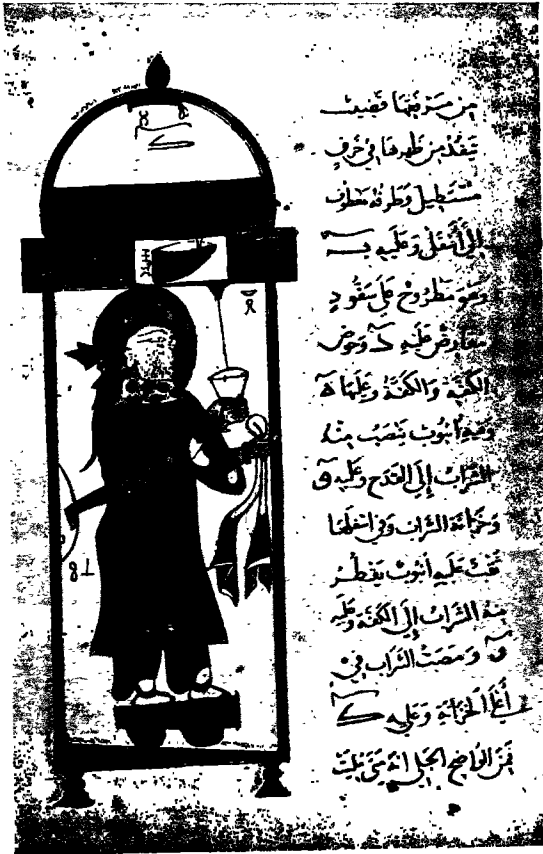 من مرفقها قضيب
ينفذ من ظهرها في خرق
مستطيل وطرفه معطوف
إلى أسفل وعليه
وهو مطروح على سفود
معارض عليه وحوض
الكفة والكفة وعليها
وفيه أنبوب ينصب منه
الشراب إلى القدح وعليه
وخزانة الشراب وفي اسفلها
ثقب عليه أنبوب يقطر
منه الشراب إلى الكفة وعليه
ومصب الشراب في
أعلى الخزانة وعليه
فمن الواضح الجلي انه متى